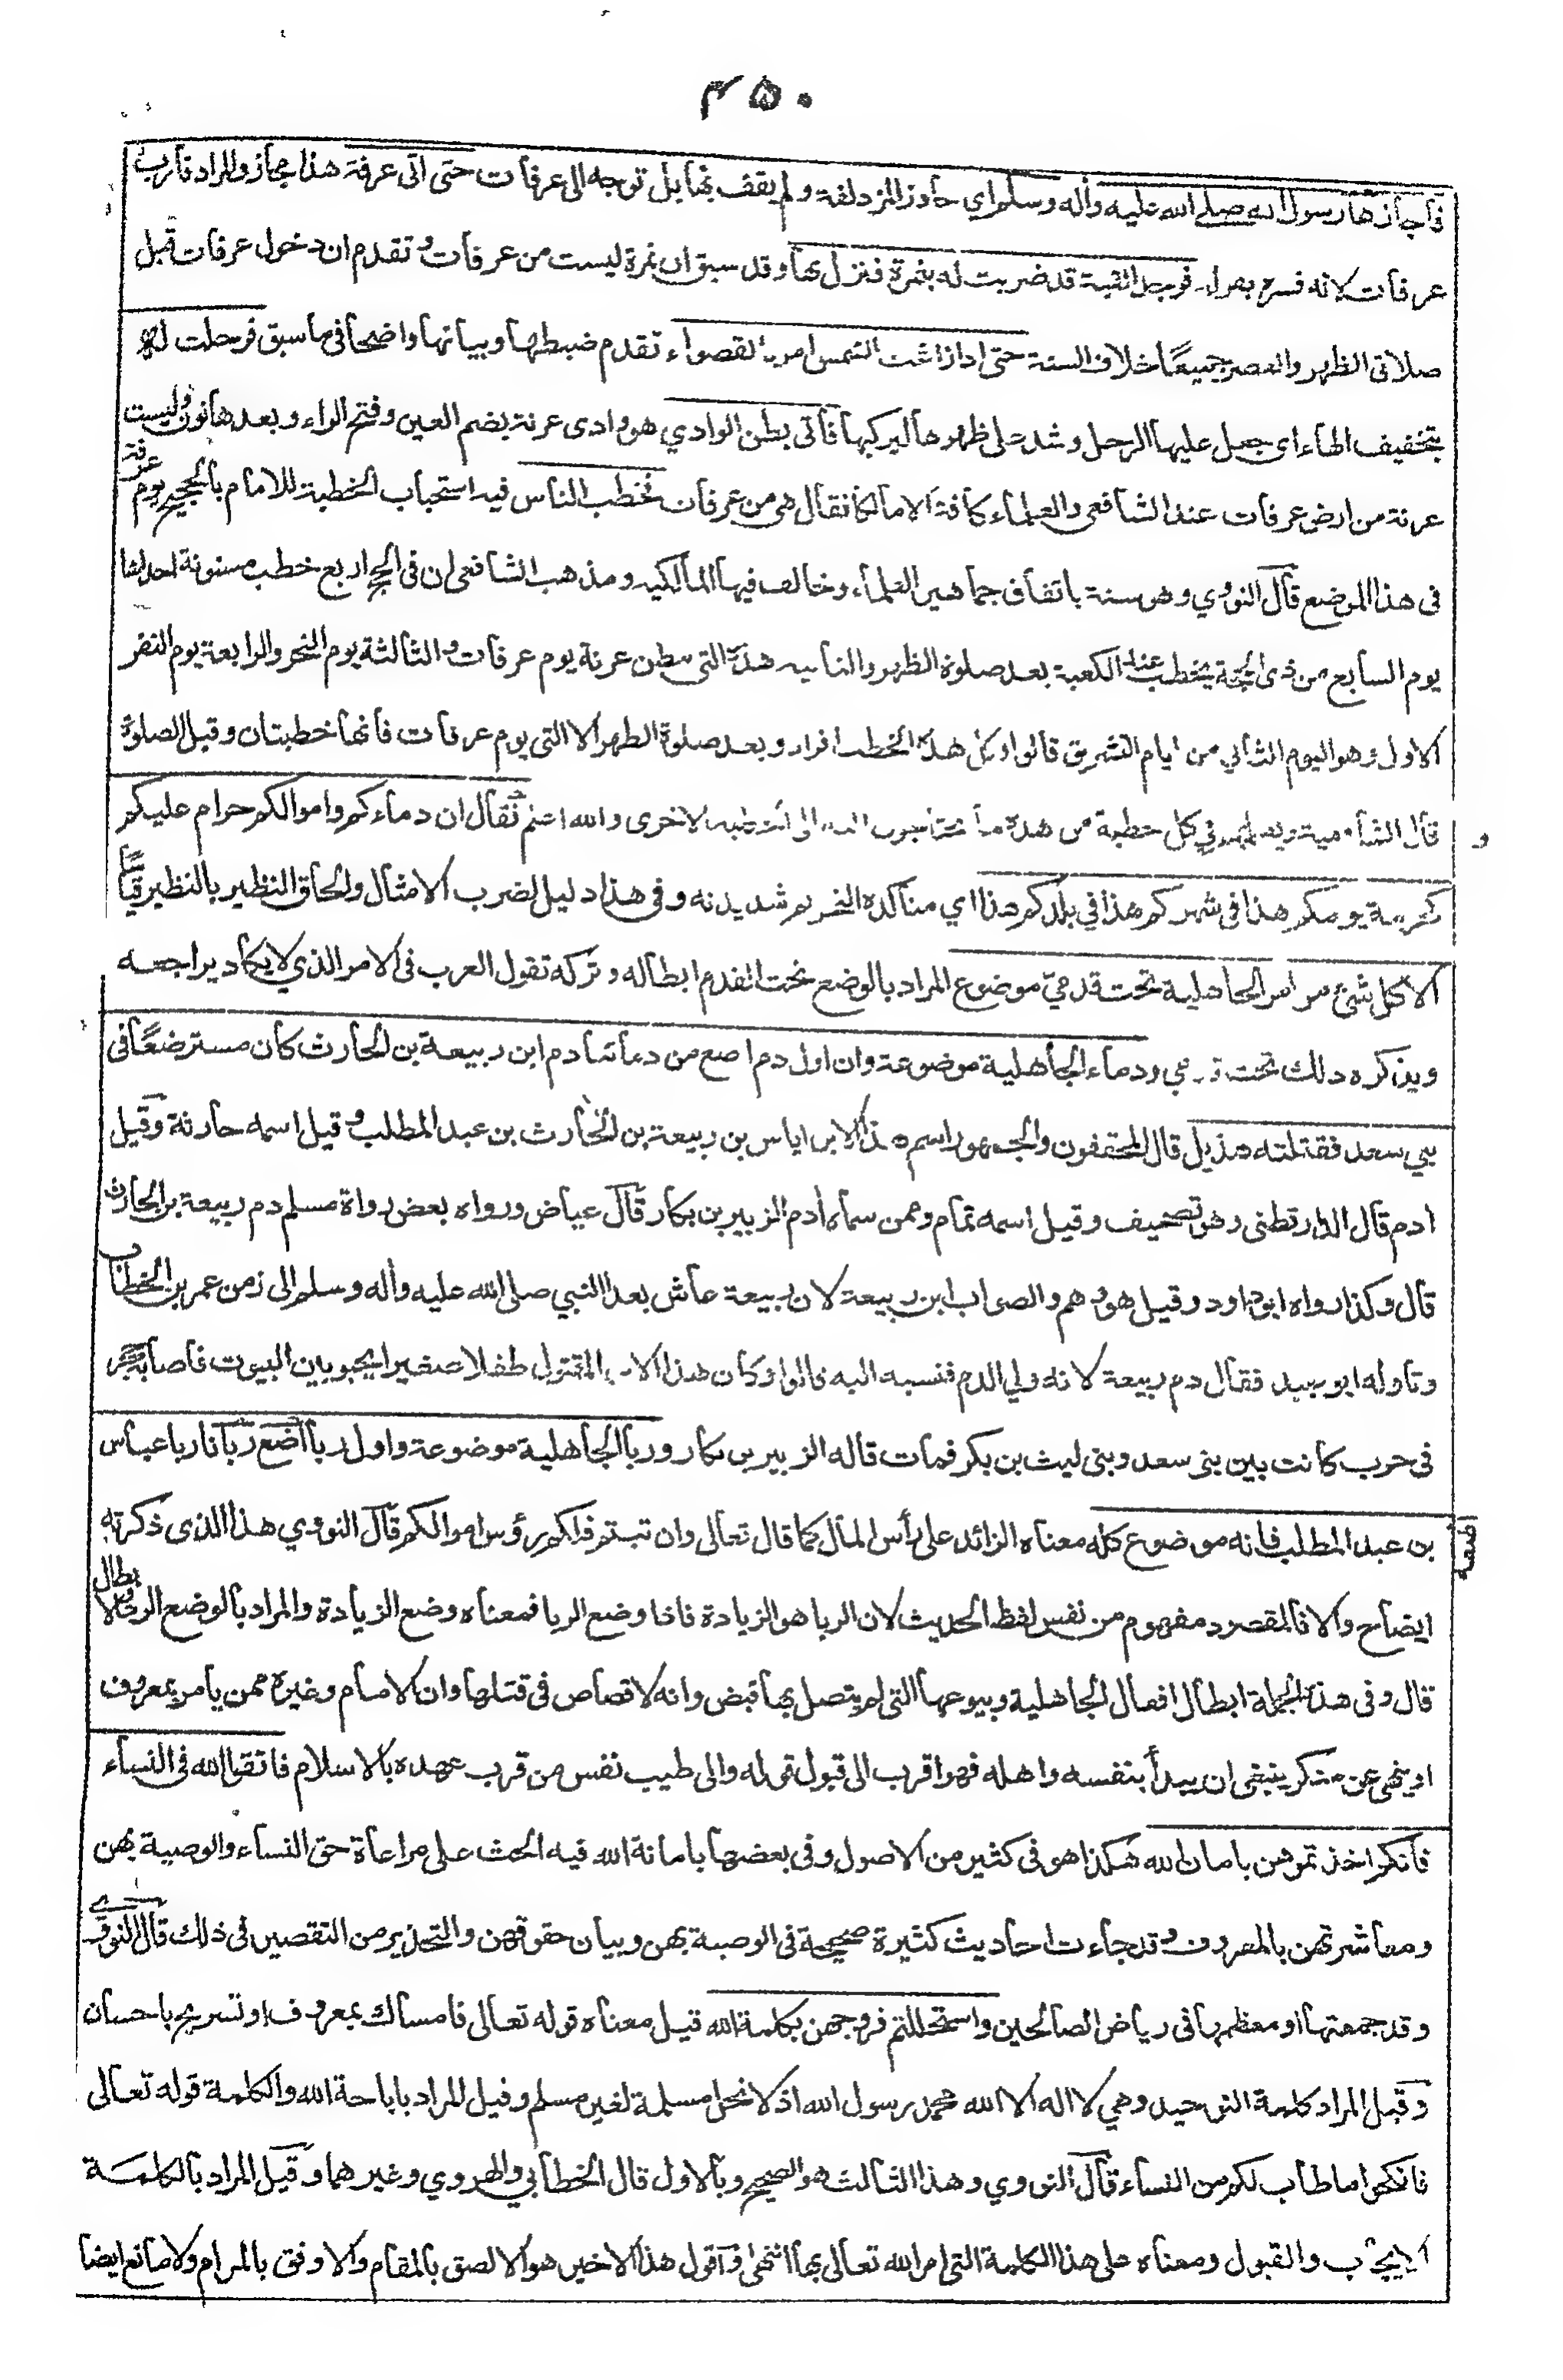 ٣٥٠
فأجازها رسول الله صلى الله عليه وأله وسلم اي جاوز المزدلفة ولم يقف بها بل توجه الى عرفات حتى اتى عرفة هذا مجاز والمراد قارب
عرفات لانه فسره بقوله فوجد القبة قد ضربت له بنمرة فنزل بها وقد سبق ان نمرة ليست من عرفات وتقدم ان دخول عرفات قبل
صلاتى الظهر والعصر جميعًا خلاف السنة حتى اذا زاغت الشمس امر بالقصواء تقدم ضبطها وبيانها واضحا فى ما سبق فرحلت له
بتخفيف الهاء اى جعل عليها الرحل وشدت على ظهرها ليركبها فأتى بطن الوادي هو وادى عرنة بضم العين وفتح الراء وبعدها نون وليست
عرنة من ارض عرفات عند الشافعى والعلماء كافة الا مالكا فقال هى من عرفات فخطب الناس فيه استحباب الخطبة للامام بالحجيج يوم عرفة
فى هذا الموضع قال النووي وهو سنة باتفاق جماهير العلماء وخالف فيها المالكيه ومذهب الشافعى ان فى الحج اربع خطب مسنونة احداها
يوم السابع من ذى الحجة يخطب عند الكعبة بعد صلوة الظهر والثانيه هذه التى ببطن عرنة يوم عرفات والثالثة يوم النحر والرابعة يوم النفر
الاول وهو اليوم الثاني من ايام التشريق قالوا وكل هذه الخطب افراد وبعد صلوة الظهر الا التى يوم عرفات فانها خطبتان وقبل الصلوة
قال الشافعية ويعلمهم في كل خطبة من هذه ما يحتاجون اليه الى الخطبة الاخرى والله اعلم فقال ان دماءكم واموالكم حرام عليكم
كحرمة يومكم هذا فى شهركم هذا في بلدكم هذا اي متأكدة التحريم شديدته وفى هذا دليل لضرب الامثال والحاق النظير بالنظير قياسًا
الا كل شئ من امر الجاهلية تحت قدمي موضوع المراد بالوضع تحت القدم ابطاله وتركه تقول العرب فى الامر الذي لا يكاد يراجعه
ويذكره ذلك تحت قدمي ودماء الجاهلية موضوعة وان اول دم اضع من دمائنا دم ابن ربيعة بن الحارث كان مسترضعًا فى
بني سعد فقتلته هذيل قال المحققون والجمهور اسم هذا الابن اياس بن ربيعة بن الحارث بن عبد المطلب وقيل اسمه حارثة وقيل
ادم قال الدارقطنى وهو تصحيف وقيل اسمه تمام وممن سماه أدم الزبير بن بكار قال عياض ورواه بعض رواة مسلم دم ربيعة بن الحارث
قال وكذا رواه ابو داود وقيل هو وهم والصواب ابن ربيعة لان ربيعة عاش بعد النبي صلى الله عليه وأله وسلم الى زمن عمر بن الخطاب
وتاوله ابو عبيد فقال دم ربيعة لانه ولي الدم فنسبه اليه قالوا وكان هذا الابن المقتول طفلا صغيرا يحبو بين البيوت فاصابه حجر
فى حرب كانت بين بنى سعد وبنى ليث بن بكر فمات قاله الزبير بن بكار وربا الجاهلية موضوعة واول ربا اضع ربانا ربا عباس
بن عبد المطلب فانه موضوع كله معناه الزائد على رأس المال كما قال تعالى وان تبتم فلكم رؤس اموالكم قال النووي هذا الذى ذكرته
ايضاح والا فالمقصود مفهوم من نفس لفظ الحديث لان الربا هو الزيادة فاذا وضع الربا فمعناه وضع الزيادة والمراد بالوضع الرد والابطال
قال وفى هذه الجملة ابطال افعال الجاهلية وبيوعها التى لم يتصل بها قبض وانه لا قصاص فى قتلها وان الامام وغيره ممن يأمر بمعروف
او ينهى عن منكر ينبغى ان يبدأ بنفسه واهله فهو اقرب الى قبول قوله والى طيب نفس من قرب عهده بالاسلام فاتقوا الله فى النساء
فانكم اخذتموهن بامان الله هكذا هو فى كثير من الاصول وفى بعضها بامانة الله فيه الحث على مراعاة حق النساء والوصية بهن
ومعاشرتهن بالمعروف وقد جاءت احاديث كثيرة صحيحة فى الوصية بهن وبيان حقوقهن والتحذير من التقصير فى ذلك قال النووي
وقد جمعتها او معظمها فى رياض الصالحين واستحللتم فروجهن بكلمة الله قيل معناه قوله تعالى فامساك بمعروف او تسريح باحسان
وقيل المراد كلمة التوحيد وهي لا اله الا الله محمد رسول الله اذ لا تحل مسلمة لغير مسلم وقيل المراد باباحة الله والكلمة قوله تعالى
فانكحوا ما طاب لكم من النساء قال النووي وهذا الثالث هو الصحيح وبالاول قال الخطابي والهروي وغيرهما وقيل المراد بالكلمة
الايجاب والقبول ومعناه على هذا الكلمة التى امر الله تعالى بها انتهى واقول هذا الاخير هو الالصق بالمقام والاوفق بالمرام ولا مانع ايضا